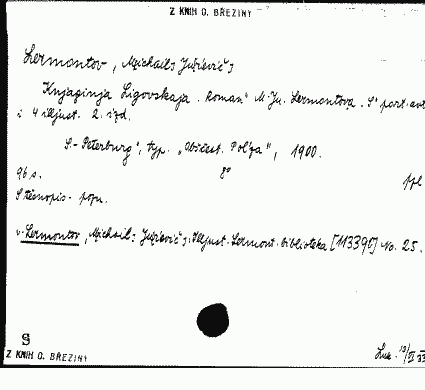 Z KNIH O. BŘEZINY
Lermontov, Michail Jur'evič
Knjaginja Ligovskaja. Roman M. Ju. Lermontova. S port. avt.
i 4 illjust. 2. izd.
S.-Peterburg, typ. „Občšest. Pol'za", 1900.
96 s. 8° ppl
S těsnopis. pozn.
v. Lermontov, Michail Jur'evič: Illjust. Lermont. biblioteka [113395] No. 25.
S
Z KNIH O. BŘEZINY